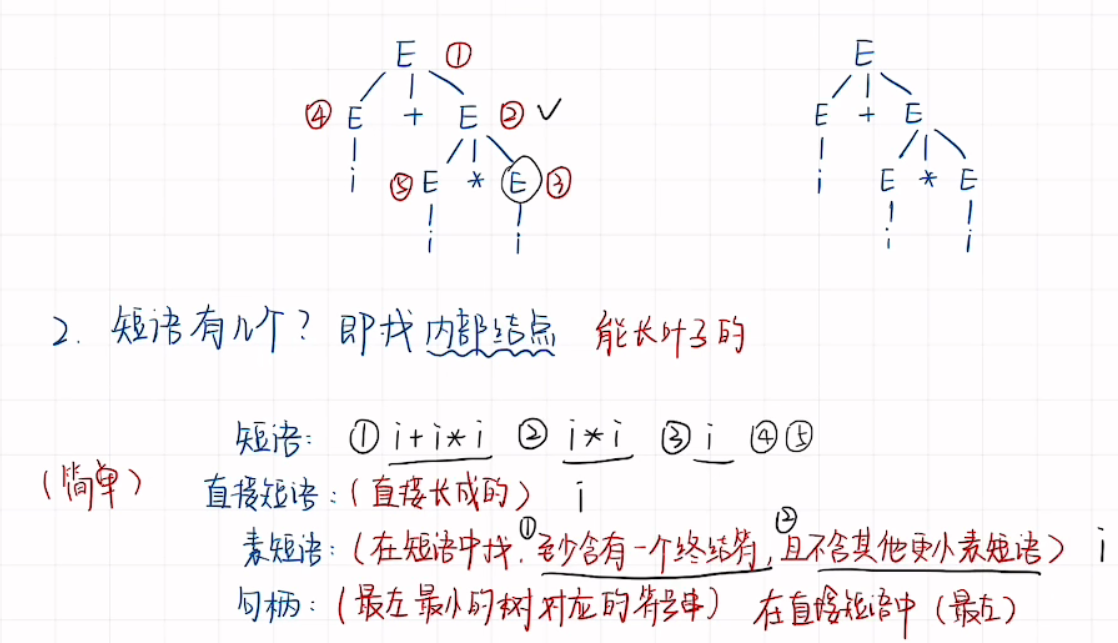 E ① E
④ E + E ② ✓ E + E
i ⑤ E * E ③ i E * E
i i i i
2. 短语有几个? 即找内部结点 能长叶子的
短语: ① i+i*i ② i*i ③ i ④⑤
(简单) 直接短语:(直接长成的) i
素短语:(在短语中找.①至少含有一个终结符,②且不含其他更小素短语) i
句柄:(最左最小的树对应的符号串) 在直接短语中(最左)